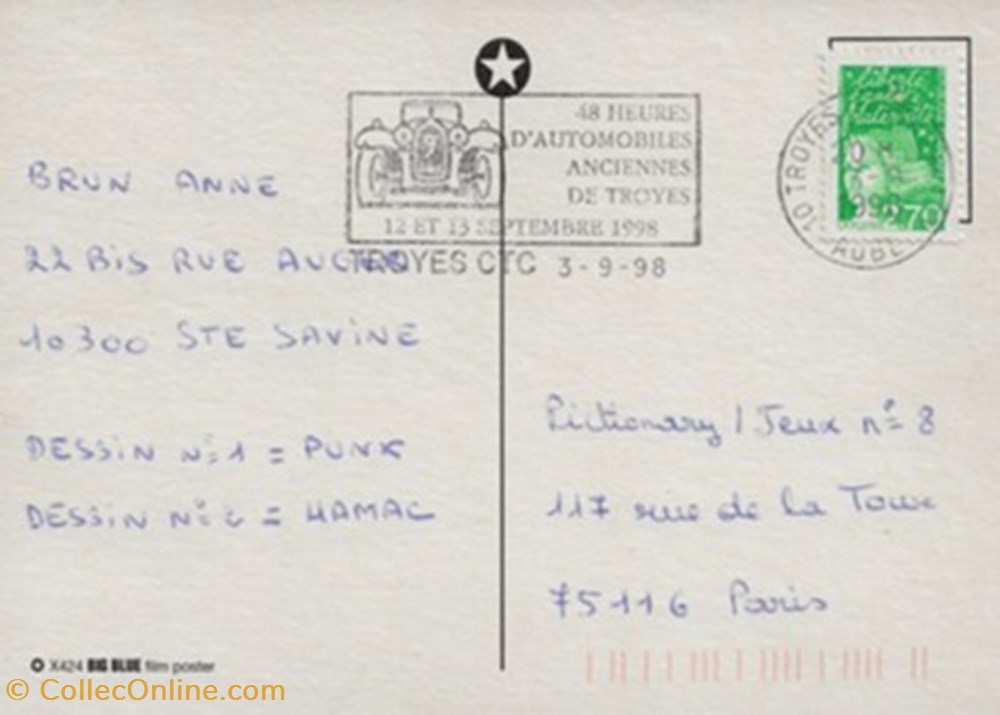 48 HEURES
D'AUTOMOBILES
ANCIENNES
DE TROYES
12 ET 13 SEPTEMBRE 1998
TROYES CTC 3-9-98
10 TROYES
AUBE
Liberté
Fraternité
2,70
BRUN ANNE
22 BIS RUE
10300 STE SAVINE
DESSIN N°1 = PUNK
DESSIN N°2 = HAMAC
Pictionary / Jeux n° 8
117 rue de la Tour
75116 Paris
X424 BIG BLUE film poster
© CollecOnline.com